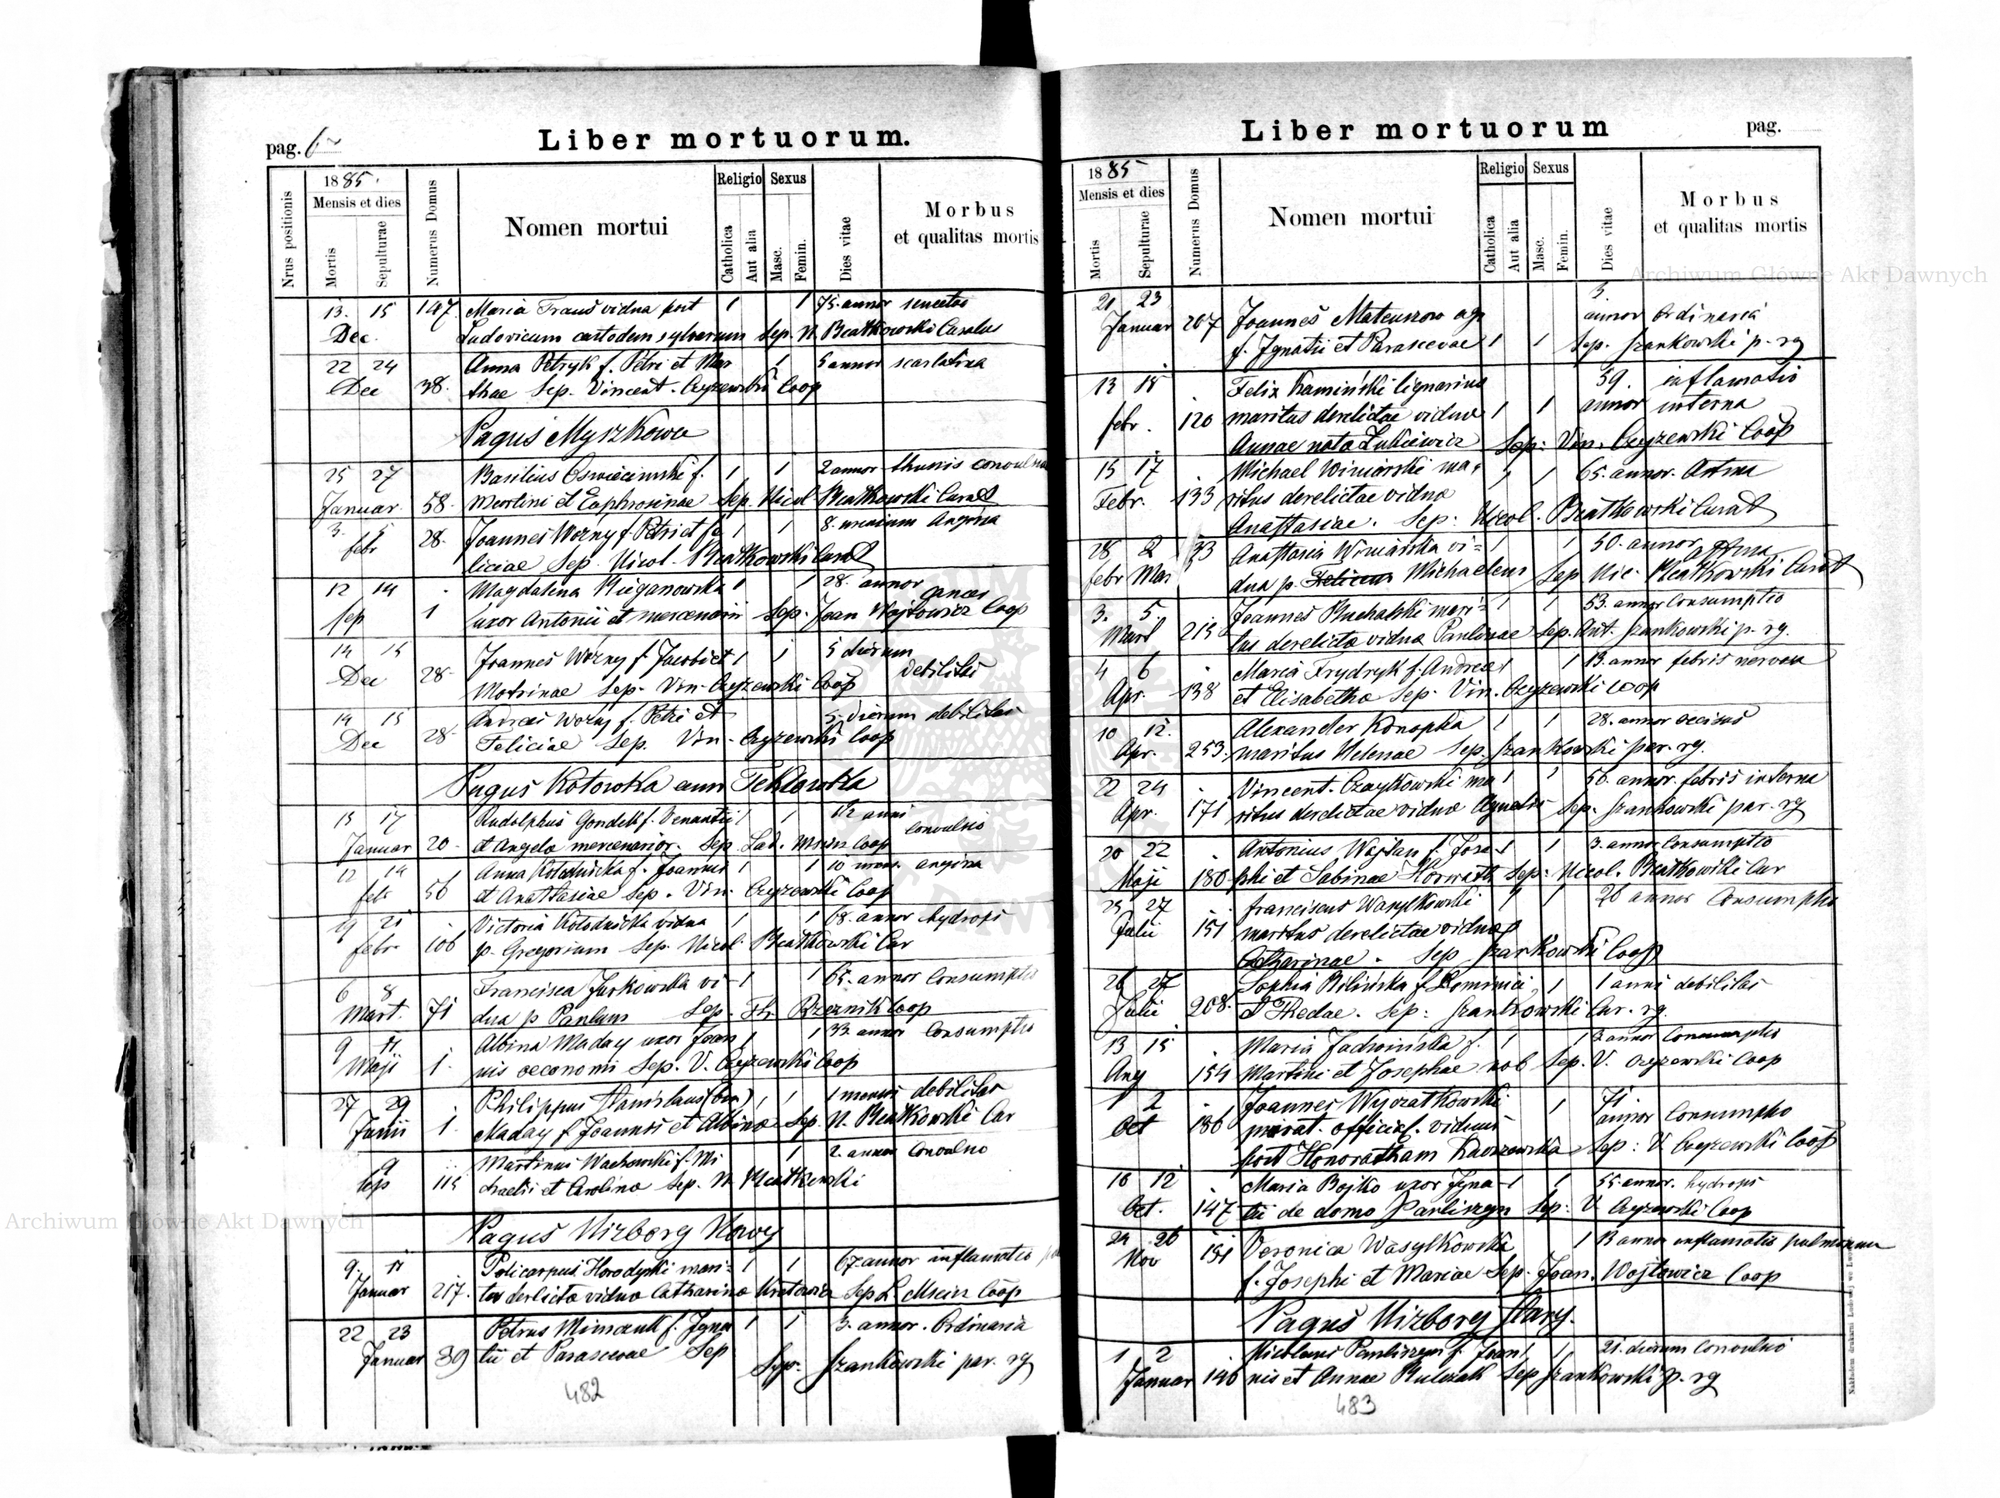 pag. 6
Liber mortuorum.
Nrus positionis
1885.
Mensis et dies
Mortis
Sepulturae
Numerus Domus
Nomen mortui
Religio
Catholica
Aut alia
Sexus
Masc.
Femin.
Dies vitae
Morbus
et qualitas mortis
13. 15 147 Maria vidua post 1 1 75. annor
Dec. Ludovicum custodem sylvarum Sep. N. Beatkowski Curatus
22 24 Anna Petryk f. Petri et Mar 1 5 annor scarlatina
Dec 38. thae Sep. Vincent. Czyzewski Coop
Pagus Myszkow
25 27 Basilius f. 1 1 2 annor
Januar 58. Martini et Euphrosinae Sep. Nicol Beatkowski Curat
3. 5 28. Joannes Wozny f. Petri et Fe 1 1 8. Angina
febr liciae Sep. Nicol. Beatkowski Curat
12 14 Magdalena 1 1 28. annor
Sep 1 uxor Antonii et Sep. Joan Wojtowicz Coop
14 15 Joannes Wozny f. Jacobi et 1 1 5 dierum
Dec 28. Motrinae Sep. Vin. Czyzewski Coop debilitas
14 15 Andreas Wozny f. Petri et 5. dierum debilitas
Dec 28. Feliciae Sep. Vin. Czyzewski Coop
Pagus Kotowka cum Teklowka
15 17 Rudolphus f. 1 1 1½ anni
Januar 20. et Angela Sep. Lad. Coop convulsio
12 14 Anna f. Joannis 1 1 10 mens. angina
feb 56 et Anastasiae Sep. Vin. Czyzewski Coop
21 Victoria vidua 1 1 68. annor hydrops
febr 106 p. Gregorium Sep. Nicol Beatkowski Cur
6 8 Francisca Jurkowska vi 1 1 65. annor Consumptio
Mart. 71 dua p Paulum Sep. Coop
9 11 Albina Maday uxor Joan 1 1 33. annor Consumptio
Maji 1. nis oeconomi Sep. V. Czyzewski Coop
27 29 Philippus Stanislaus 1 1 1 mensis debilitas
Junii 1. Maday f. Joannis et Albinae Sep. N. Beatkowski Cur
9 Martinus Wachowski f. Mi 1 2. annor Convulsio
Sep 115 et Carolina Sep. N. Beatkowski
Pagus Uizborg Nowy
9. 11 Policarpus Horodyski mari 1 1 67 annor inflamatio
Januar 217. tus derelictae viduae Catharinae Sep L Coop
22 23 Petrus f. Igna 1 1 3. annor. Ordinaria
Januar 39 tii et Parascevae Sep
Sep. Szankowski par. rg
482
Liber mortuorum
pag.
1885
Mensis et dies
Mortis
Sepulturae
Numerus Domus
Nomen mortui
Religio
Catholica
Aut alia
Sexus
Masc.
Femin.
Dies vitae
Morbus
et qualitas mortis
21 23 3.
Januar 207 Joannes annor Ordinaria
f. Ignatii et Parascevae 1 1 Sep. Szankowski p. rg
13 15 Felix Kamiński lignarius 59. inflamatio
febr. 120 maritus derelictae viduae 1 1 annor interna
Annae nata Łukiewicz Sep: Vin. Czyzewski Coop
15 17 Michael Winiarski ma 1 1 65. annor.
Febr. 133 ritus derelictae viduae
Anastasiae. Sep: Nicol. Beatkowski Curat
28 2 33 Anastasia Winiarska vi 1 1 50. annor
febr Mar dua p. Michaelem Sep Nic. Beatkowski Curat
3. 5. Joannes mari 1 1 53. annor Consumptio
Mart 215 tus derelictae viduae Paulinae Sep. Ant. Szankowski p. rg.
4 6 Maria Frydryk f. Andreae 1 1 13. annor febris nervosa
Apr. 138 et Elisabetha Sep. Vin. Czyzewski coop
10 12. Alexander Konopka 1 1 28. annor occisus
Apr. 253. maritus Helenae Sep. Szankowski par. rg.
22 24 Vincent. Czaykowski ma 1 1 56. annor. febris interna
Apr. 171 ritus derelictae viduae Agnetis Sep. Szankowski par. rg
20 22 Antonius f. Jose 1 1 3. annor Consumptio
Maji 180 phi et Sabinae Horwath Sep: Nicol. Beatkowski Cur
25 27 Franciscus Wasylkowski 1 1 26 annor Consumptio
Julii 151 maritus derelictae viduae
Catharinae. Sep Szankowski Coop
26 27 Sophia Bilińska f. Dominici 1 1 anni debilitas
Julii 208. Sep: Szankowski Cur. rg.
13 15 Maria f. 1 1 2 annor Consumptio
Aug 154 Martini et Josephae nob Sep. V. Czyzewski Coop
1 2 Joannes Wyszatkowski 1 71
Oct 186 privat. official. viduus annor Consumptio
post Honoratham Sep: V. Czyzewski Coop
10 12 Maria Bojko uxor Igna 1 1 55 annor. hydrops
Oct. 147 tii de domo Pavliszyn Sep: V Czyzewski Coop
24 26 Veronica Wasylkowska 1 13 annor inflamatio pulmonum
Nov 151 f. Josephi et Mariae Sep. Joan. Wojtowicz Coop
Pagus Uizborg Stary.
1 2 Pavliszyn f. Joan 1 1 21. dierum Convulsio
Januar 140 nis et Annae Sep Szankowski p. rg
483
Archiwum Główne Akt Dawnych
Archiwum Główne Akt Dawnych